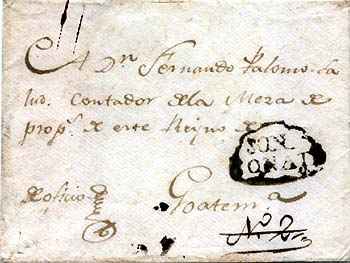 A Dn. Fernando Palomo. Sa
lud. Contador de la Meza de
props. de este Reyno de
SON
ONAT
de oficio
Goatema.
No. 2.